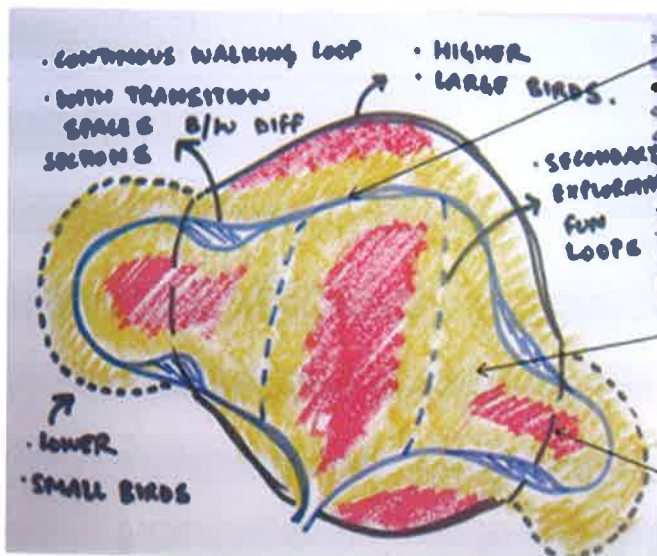 · CONTINUOUS WALKING LOOP
· WITH TRANSITION
SPACES B/W DIFF
SECTIONS
· HIGHER
· LARGE BIRDS.
· SECONDARY
FUN
LOOPS
· LOWER
· SMALL BIRDS